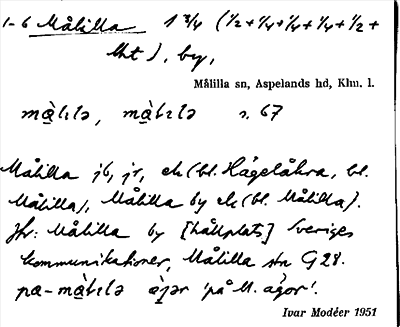 1-6 Målilla 1 3/4 (1/2+1/4+1/4+1/4+1/2+
Utht), by,
Målilla sn, Aspelands hd, Klm. l.
mà̱lɩlə, mà̱tɩlə s. 67
Målilla jb, jr, ek (bl. Hágelåkra, bl.
Målilla), Målilla by ek (bl. Målilla).
Jfr: Målilla by [hållplats] Sveriges
kommunikationer, Målilla stn G28.
pa-mà̱tɩlə à̱jər 'på M. ägor'.
Ivar Modéer 1951